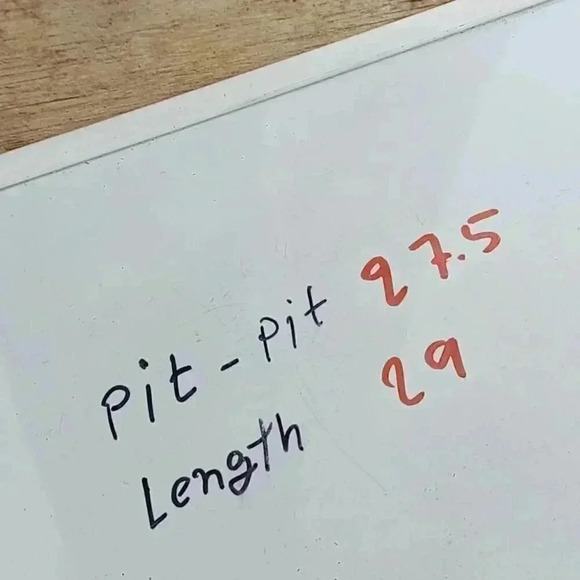 Pit - Pit 27.5
Length 29